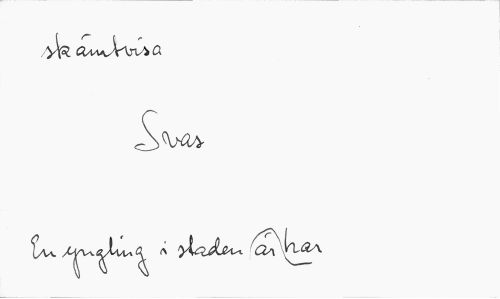 skämtvisa
Svas
En yngling i staden är har